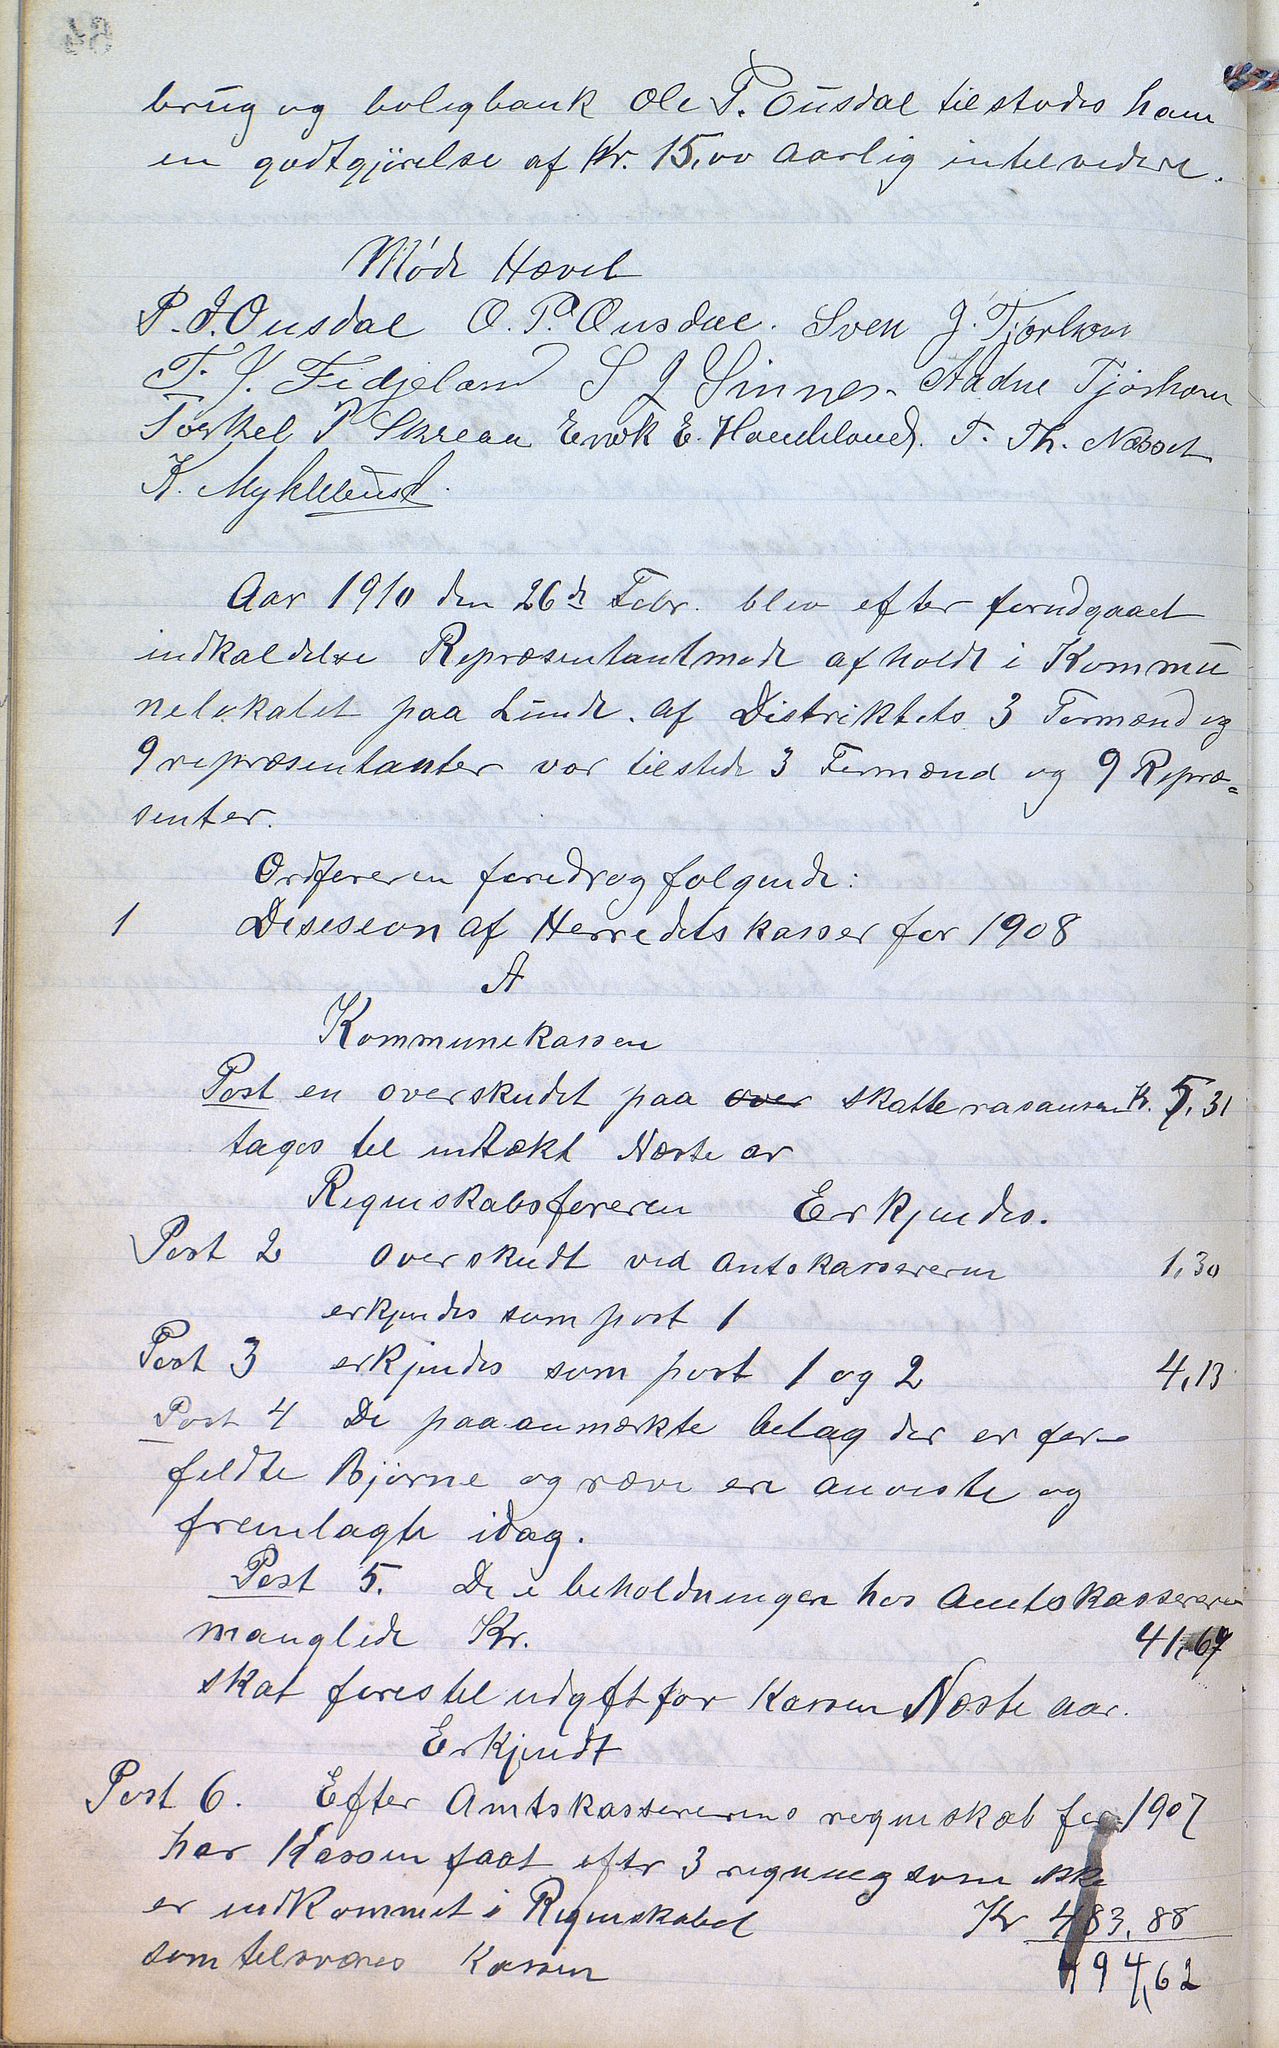 brug og boligbank Ole P. Ousdal tilstodes ham
en godtgjörelse af Kr. 15,00 aarlig intil videre.
Möde Hævet
P. J. Ousdal O. P. Ousdal. Sven J. Tjorhom
T. S. Fidjeland S J Sinnes. Aadne Tjorhom
Torkel P Skreaa Enok E. Haukeland. T. Th. Næsset
K. Myklebust.
Aar 1910 den 26de Febr. blev efter forudgaaet
indkaldelse Repræsentantmøde afholdt i Kommu
nelokalet paa Lunde. af Distriktets 3 Formænd og
9 repræsentanter var tilstede 3 Formænd og 9 Repræ=
senter.
Ordføreren foredrog folgende:
1 Desesion af Herredetskasser for 1908
A
Kommunekassen
Post en overskudet paa over skatte Kr. 5,31
tages til indtækt Næste ar
Regnskabsføreren Erkjendes.
Post 2 overskudt ved amtskassereren 1,30
erkjendes som post 1
Post 3 erkjendes som post 1 og 2 4,13
Post 4 De paaanmærkte belag der er for
feldte Bjørne og ræve ere anviste og
fremlagte idag.
Post 5. De i beholdningen hos Amtskassereren
manglede Kr. 41,67
skat føres til udgift for Kassen Næste aar.
Erkjendt
Post 6. Efter Amtskassererens regnskab for 1907
har Kassen faat efter 3 regning som ikke
er indkommet i Regnskabet Kr 483,88
som tilsvares Kassen 494,62